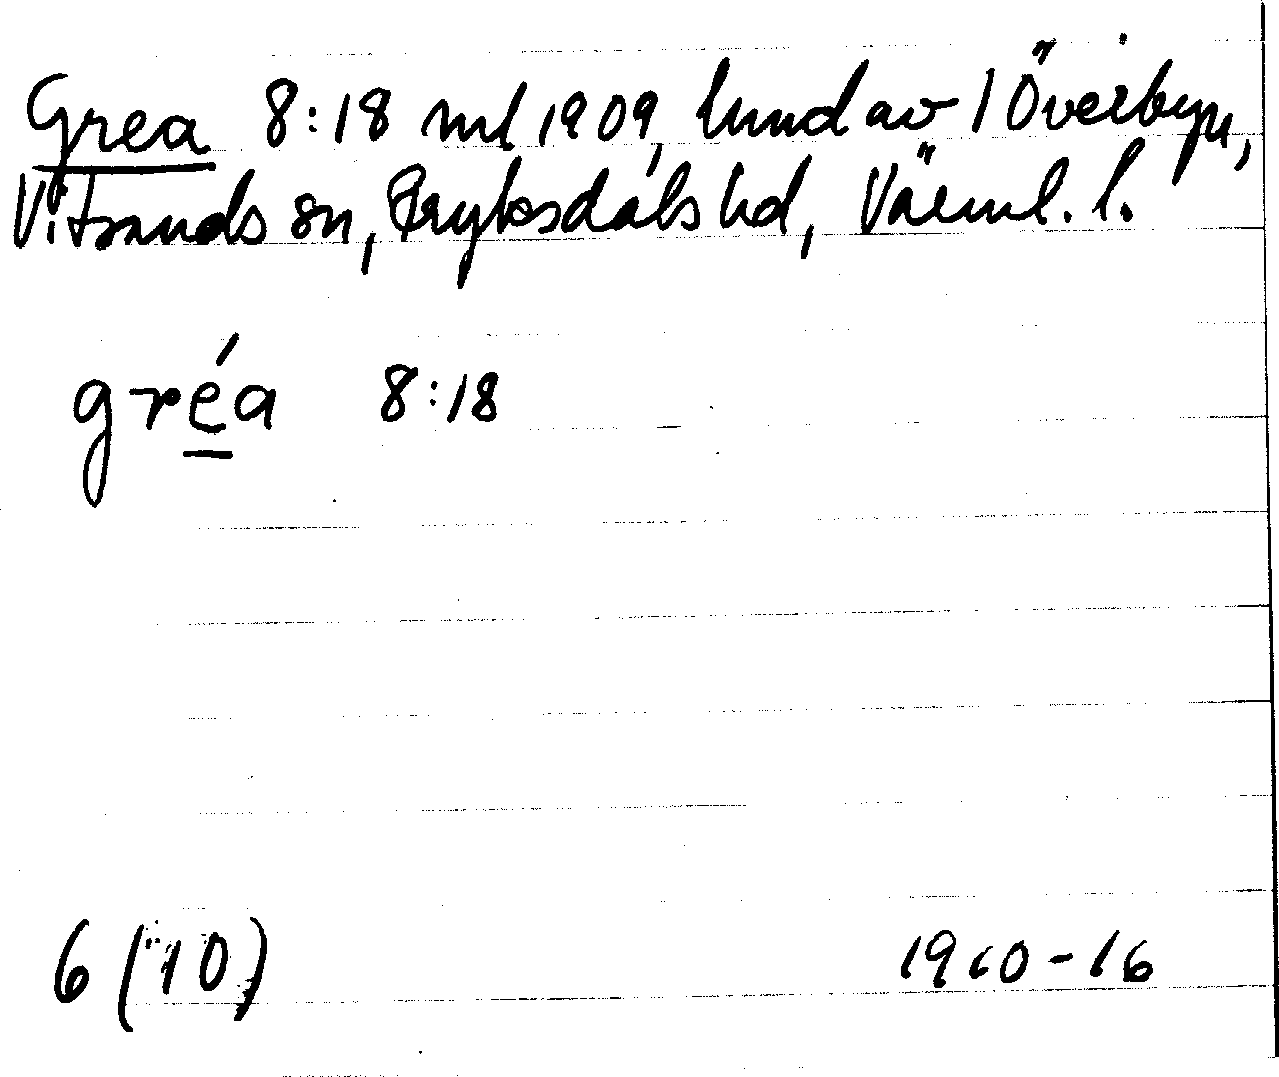 Grea 8:18 ml 1909, lund av 1 Överbyn,
Vitsands sn, Fryksdals hd, Värml. l.
gréa 8:18
6 (10) 1960-16